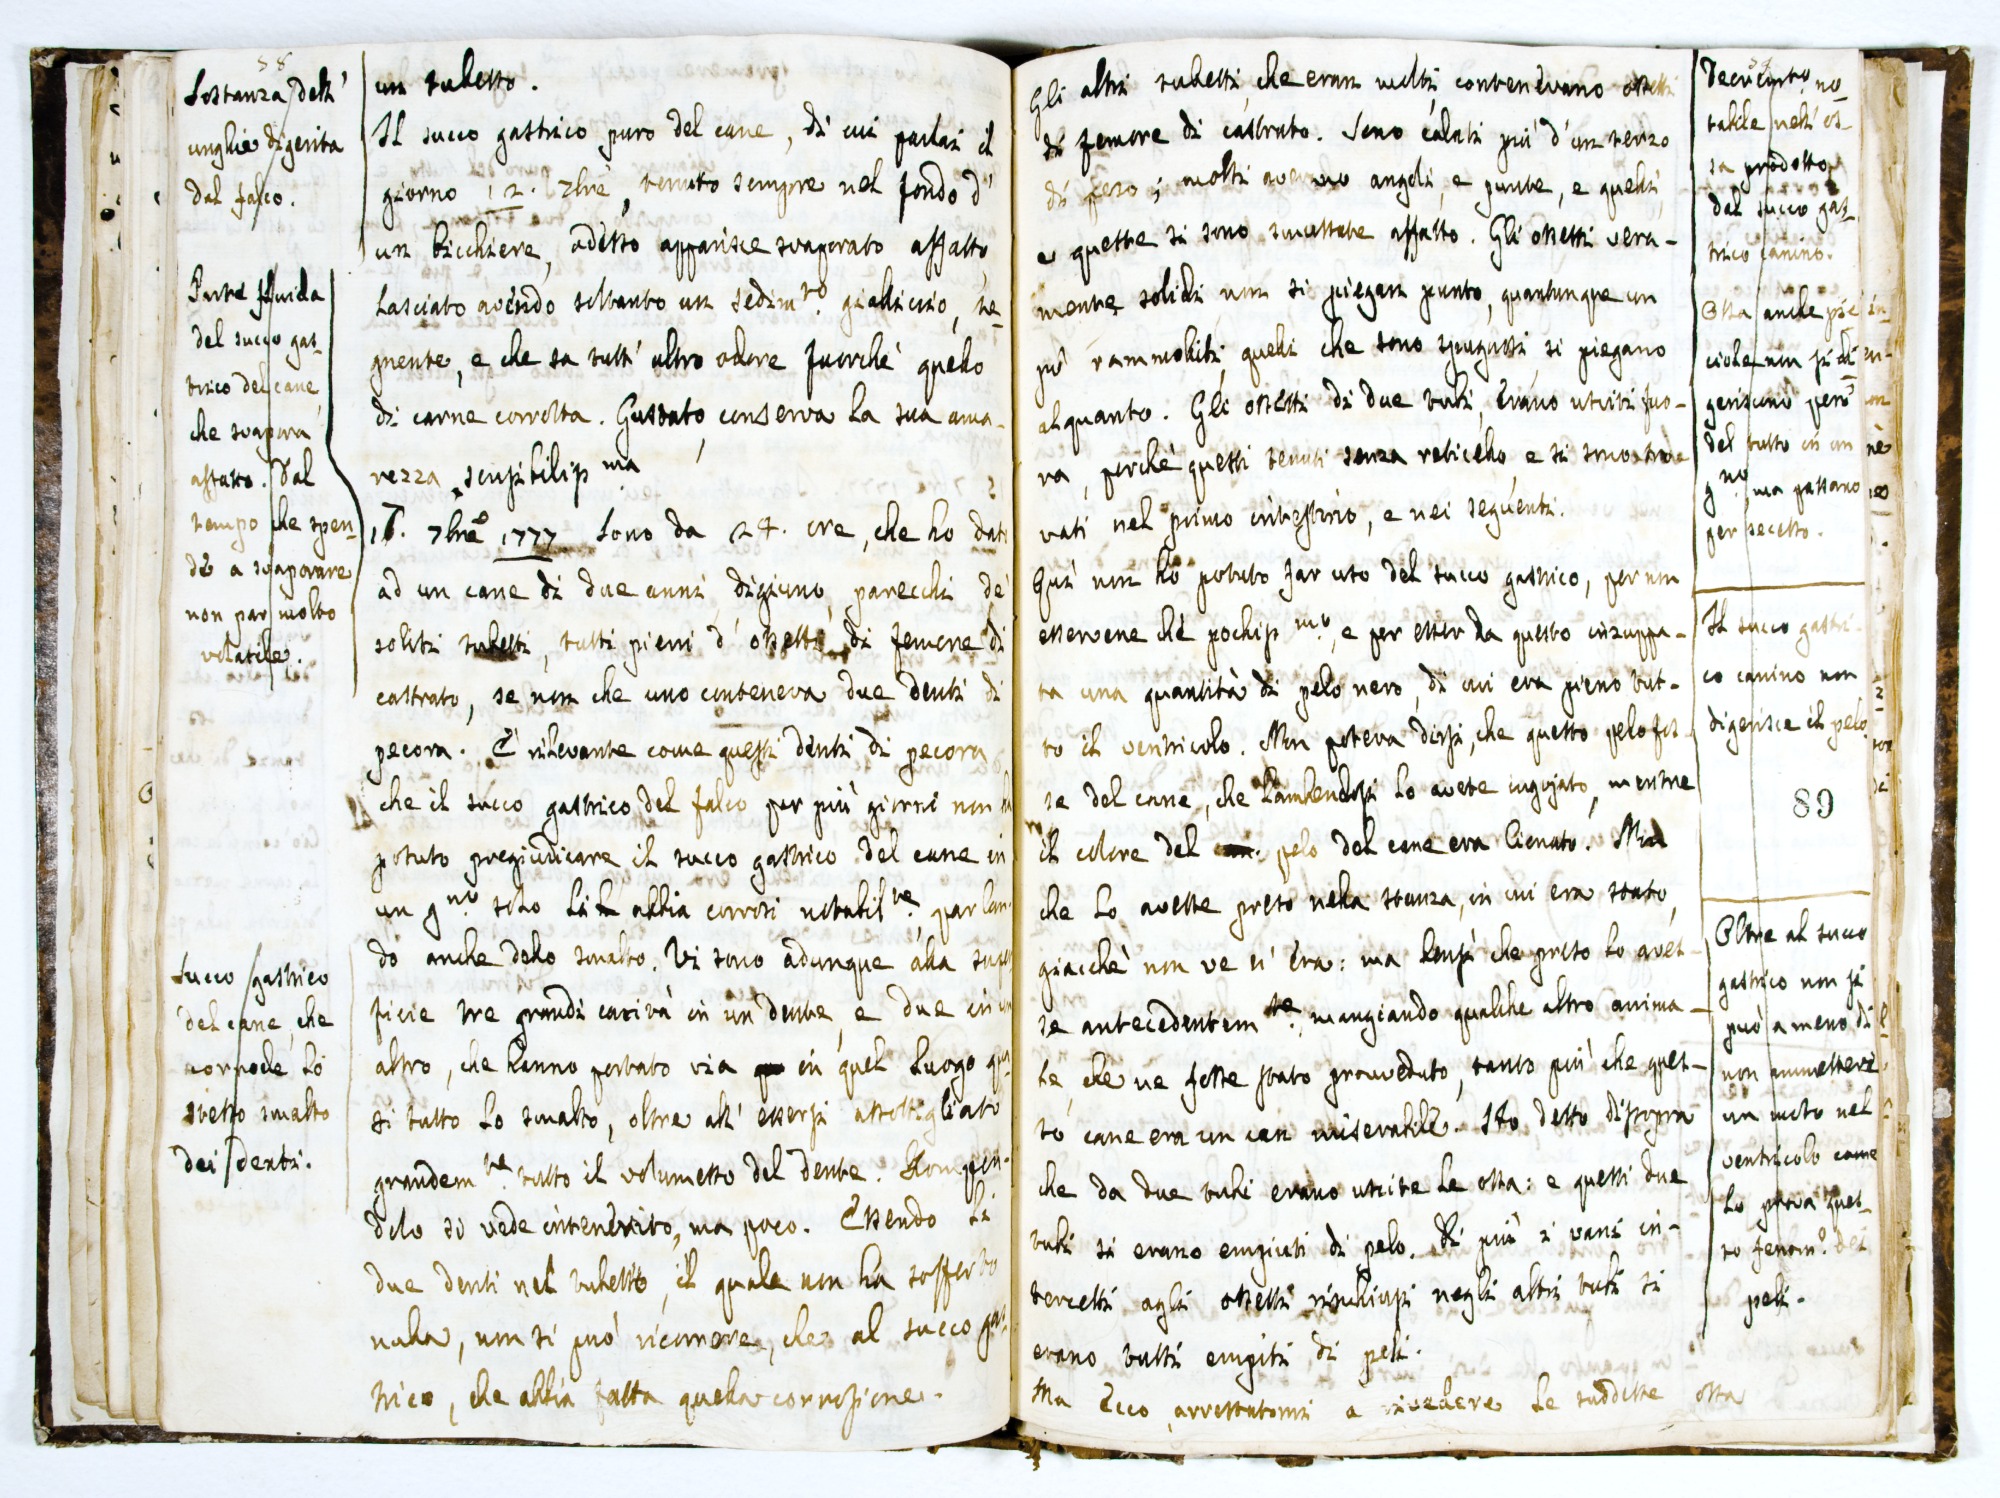 58
Sostanza dell'
unghie digerita
dal falco.
Parte fluida
del succo gas-
trico del cane,
che svapora
affatto. Dal
tempo che spen-
de a svaporare
non par molto
volatile.
Succo gastrico
del cane, che
corrode lo
stesso smalto
dei denti.
un tubetto.
Il succo gastrico puro del cane, di cui parlai il
giorno 12. 7bre, tenuto sempre nel fondo d'
un bicchiere, adesso apparisce svaporato affatto,
lasciato avendo soltanto un sedimto. gialliccio, te-
gnente, e che sa tutt' altro odore fuorchè quello
di carne corrotta. Gustato, conserva la sua ama-
rezza sensibilissma.
15. 7bre 1777 Sono da 24. ore, che ho dati
ad un cane di due anni, digiuno, parecchi de'
soliti tubetti, tutti pieni d' ossetti di femore di
castrato, se non che uno conteneva due denti di
pecora. È rilevante come questi denti di pecora
che il succo gastrico del falco per più giorni non ha
potuto pregiudicare il succo gastrico del cane in
un gno. solo li abbia corrosi notabilte, parlan-
do anche dello smalto. Vi sono adunque alla super
ficie tre grandi cavità in un dente, e due in un
altro, che hanno portato via in quel luogo qua
si tutto lo smalto, oltre all' essersi assottigliato
grandemte. tutto il volumetto del dente. Rompen-
dolo si vede intenerito, ma poco. Essendo li
due denti nel tubetto, il quale non ha sofferto
nulla, non si può ricorrere, che al succo gas-
trico, che abbia fatta quella corrosione.
Gli altri tubetti, che eran molti, contenevano ossetti
di femore di castrato. Sono calati più d'un terzo
di peso; molti avevano angoli, e punte, e quelli,
e queste si sono smussate affatto. Gli ossetti vera-
mente solidi non si piegan punto, quantunque un
po' rammolliti, quelli che sono spugnosi si piegano
alquanto. Gli ossetti di due tubi, erano usciti fuo-
ra, perchè questi tenuti senza reticello e si sono tro
vati nel primo intestino, e nei seguenti.
Qui non ho potuto far uso del succo gastrico, per non
esservene che pochissmo, e per esser da questo inzuppa-
ta una quantità di pelo nero, di cui era pieno tut-
to il ventricolo. Non poteva dirsi, che questo pelo fos-
se del cane, che lambendosi lo avesse ingojato, mentre
il colore del pelo del cane era lionato. Non
che lo avesse preso nella stanza, in cui era stato,
giacchè non ve n' era: ma bensì che preso lo aves-
se antecedentemte, mangiando qualche altro anima-
le, che ne fosse stato provveduto, tanto più che ques-
to cane era un can miserabile. Ho detto di sopra
che da due tubi erano uscite le ossa: e questi due
tubi si erano empiuti di pelo. Di più i vani in-
tercetti agli ossetti rinchiusi negli altri tubi si
erano tutti empiti di peli.
Ma ecco, arrestatomi a rivedere le suddette ossa
Decremto. no-
tabile nell' os-
sa prodotto
dal succo gas-
trico canino.
Ossa anche pic
ciole non si di
geriscono però
del tutto in un
gno. ma passano
per secesso.
Il succo gastri-
co canino non
digerisce il pelo.
89
Oltre al succo
gastrico non si
può a meno di
non ammettere
un moto nel
ventricolo come
lo prova ques-
to fenomo. dei
peli.